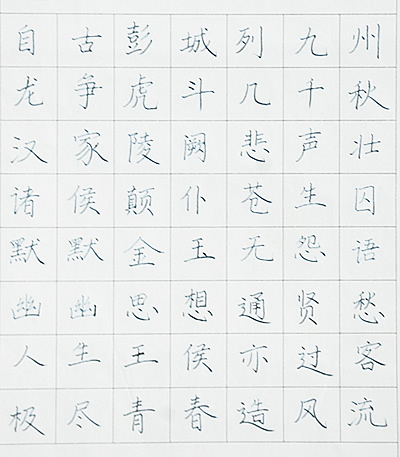 自古彭城列九州
龙争虎斗几千秋
汉家陵阙悲声壮
诸侯颠仆苍生囚
默默金玉无怨语
幽幽思想通贤愁
人生王侯亦过客
极尽青春造风流